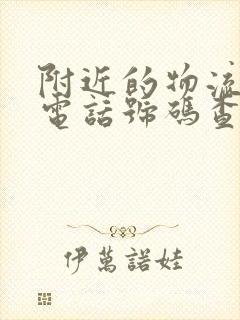 附近的物流
電話號碼查
伊萬諾娃